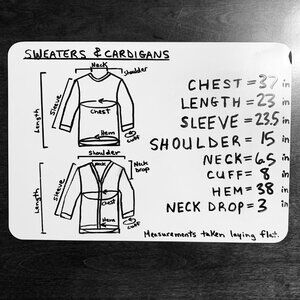 SWEATERS & CARDIGANS
Neck
Shoulder
Length
Sleeve
Chest
Hem
Cuff
Shoulder
Neck
Neck Drop
Length
Sleeve
Chest
Hem
Cuff
CHEST = 37 in
LENGTH = 23 in
SLEEVE = 23.5 in
SHOULDER = 15 in
NECK = 6.5 in
CUFF = 8 in
HEM = 38 in
NECK DROP = 3 in
Measurements taken laying flat.